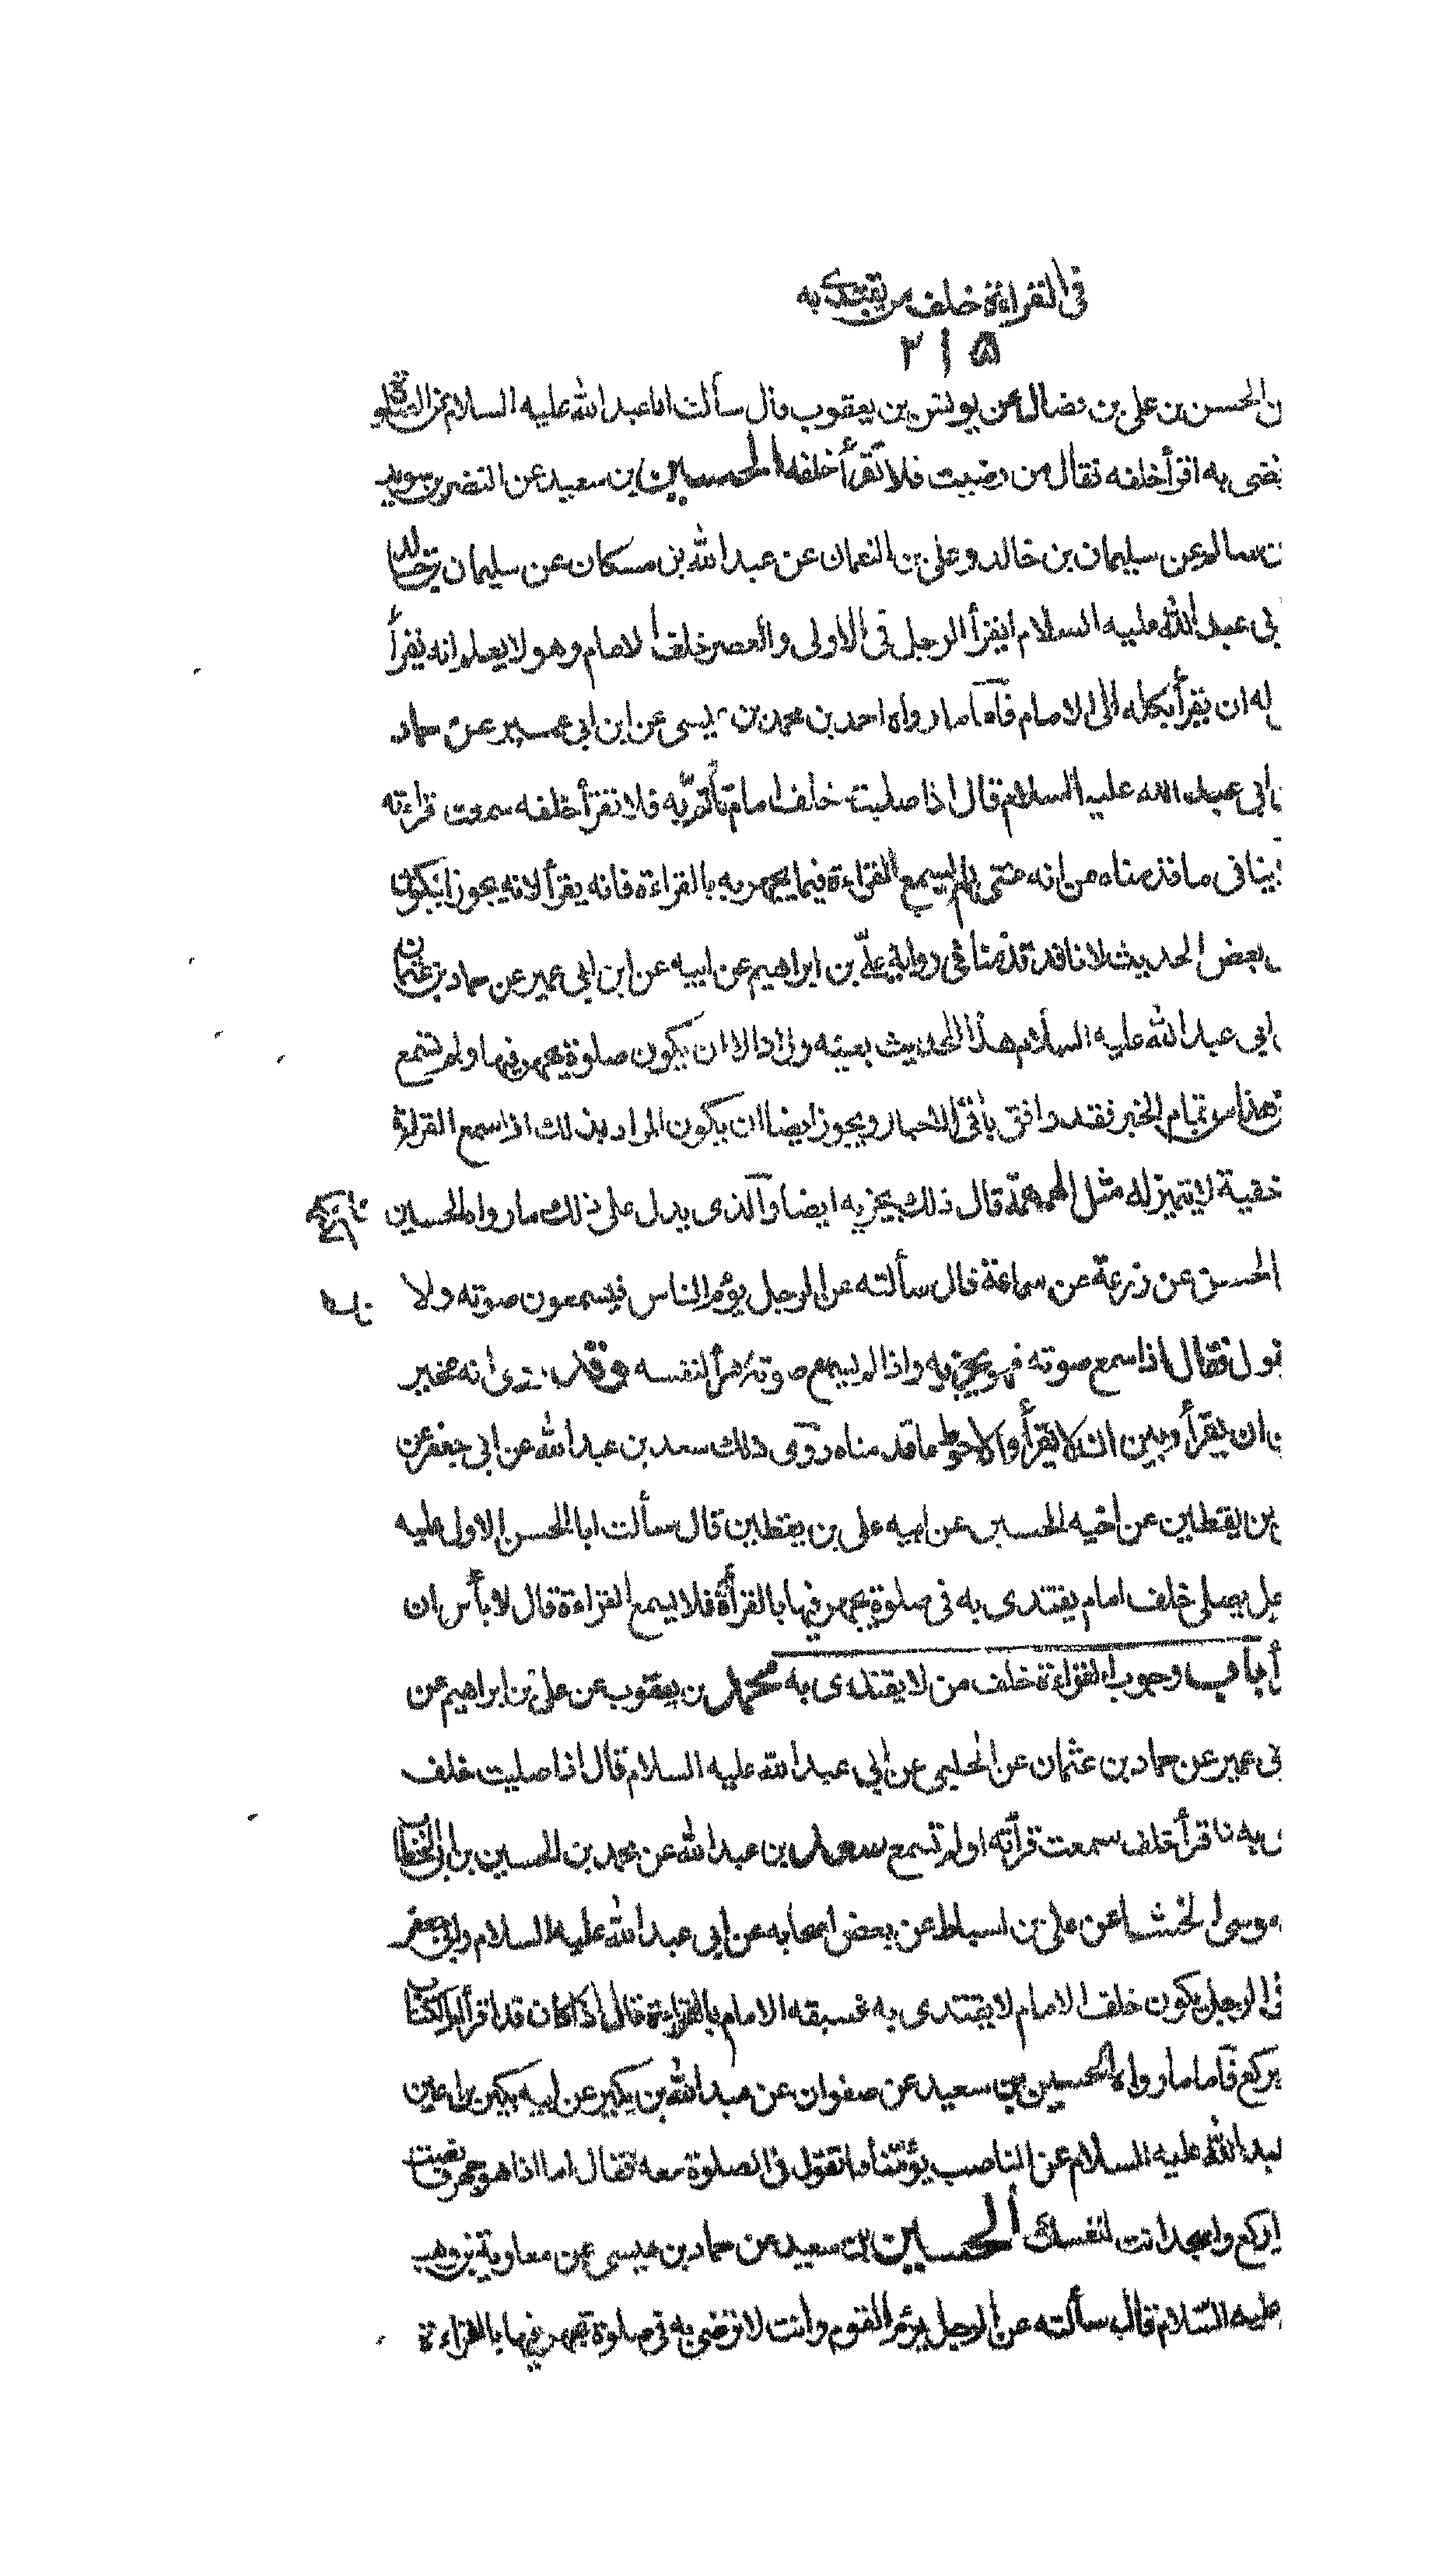 في القراءة خلف من يقتدى به
٢١٥
ن الحسن بن علي بن فضال عن يونس بن يعقوب قال سألت ابا عبد الله عليه السلام عن الصلوة
نضى به اقرأ خلفه فقال من رضيت فلا تقرأ خلفه الحسين بن سعيد عن النضر بن سويد
ن سالم عن سليمان بن خالد وعلي بن النعمان عن عبد الله بن مسكان عن سليمان بن خالد
بي عبد الله عليه السلام ايقرأ الرجل في الاولى والعصر خلف الامام وهو لا يعلم انه يقرأ
له ان يقرأ يكله الى الامام فاما ما رواه احمد بن محمد بن عيسى عن ابن ابي عمير عن حماد
ابي عبد الله عليه السلام قال اذا صليت خلف امام تأتم به فلا تقرأ خلفه سمعت قراءته
ينافى ما قدمناه من انه متى لم يسمع القراءة فيما يجهر به بالقراءة فانه يقرأ لانه يجوز ان يكون
بعض الحديث لانا قد قدمنا في رواية علي بن ابراهيم عن ابيه عن ابن ابي عمير عن حماد بن عثمان
ابي عبد الله عليه السلام هذا الحديث بعينه وزاد الا ان يكون صلوة يجهر فيها ولم تسمع
هذا من تمام الخبر فقد وافق باقى الاخبار ويجوز ايضا ان يكون المراد بذلك اذا سمع القراءة
خفية لا يتميز له مثل الهمهمة قال ذلك يجزيه ايضا والذى يدل على ذلك ما رواه الحسين
الحسن عن زرعة عن سماعة قال سألته عن الرجل يؤم الناس فيسمعون صوته ولا
قول فقال اذا سمع صوته فهو يجزيه واذا لم يسمع صوته قرأ لنفسه وقد روى انه مخير
ان يقرأ وبين ان لا يقرأ والاحوط ما قدمناه روى ذلك سعد بن عبد الله عن ابي جعفر عن
بن يقطين عن اخيه الحسين عن ابيه علي بن يقطين قال سألت ابا الحسن الاول عليه
جل يصلى خلف امام يقتدى به في صلوة يجهر فيها بالقرأة فلا يسمع القراءة قال لا بأس ان
أ باب وجوب القراءة خلف من لا يقتدى به محمد بن يعقوب عن علي بن ابراهيم عن
بي عمير عن حماد بن عثمان عن الحلبي عن ابي عبد الله عليه السلام قال اذا صليت خلف
ى به فاقرأ خلف سمعت قرأته اولم تسمع سعد بن عبد الله عن محمد بن الحسين بن ابي الخطاب
موسى الخشاب عن علي بن اسباط عن بعض اصحابه عن ابي عبد الله عليه السلام وابي جعفر
في الرجل يكون خلف الامام لا يقتدى به فيسبقه الامام بالقراءة قال اذا كان قد قرأ ام الكتاب
يركع فاما ما رواه الحسين بن سعيد عن صفوان عن عبد الله بن بكير عن ابيه بكير بن اعين
عبد الله عليه السلام عن الناصب يؤمنا ما تقول في الصلوة معه فقال اما اذا هو جهر فانصت
اركع واسجد انت لنفسك الحسين بن سعيد عن حماد بن عيسى عن معاوية بن وهب
عليه السلام قال سألته عن الرجل يؤم القوم وانت لا ترضى به في صلوة يجهر فيها بالقراءة